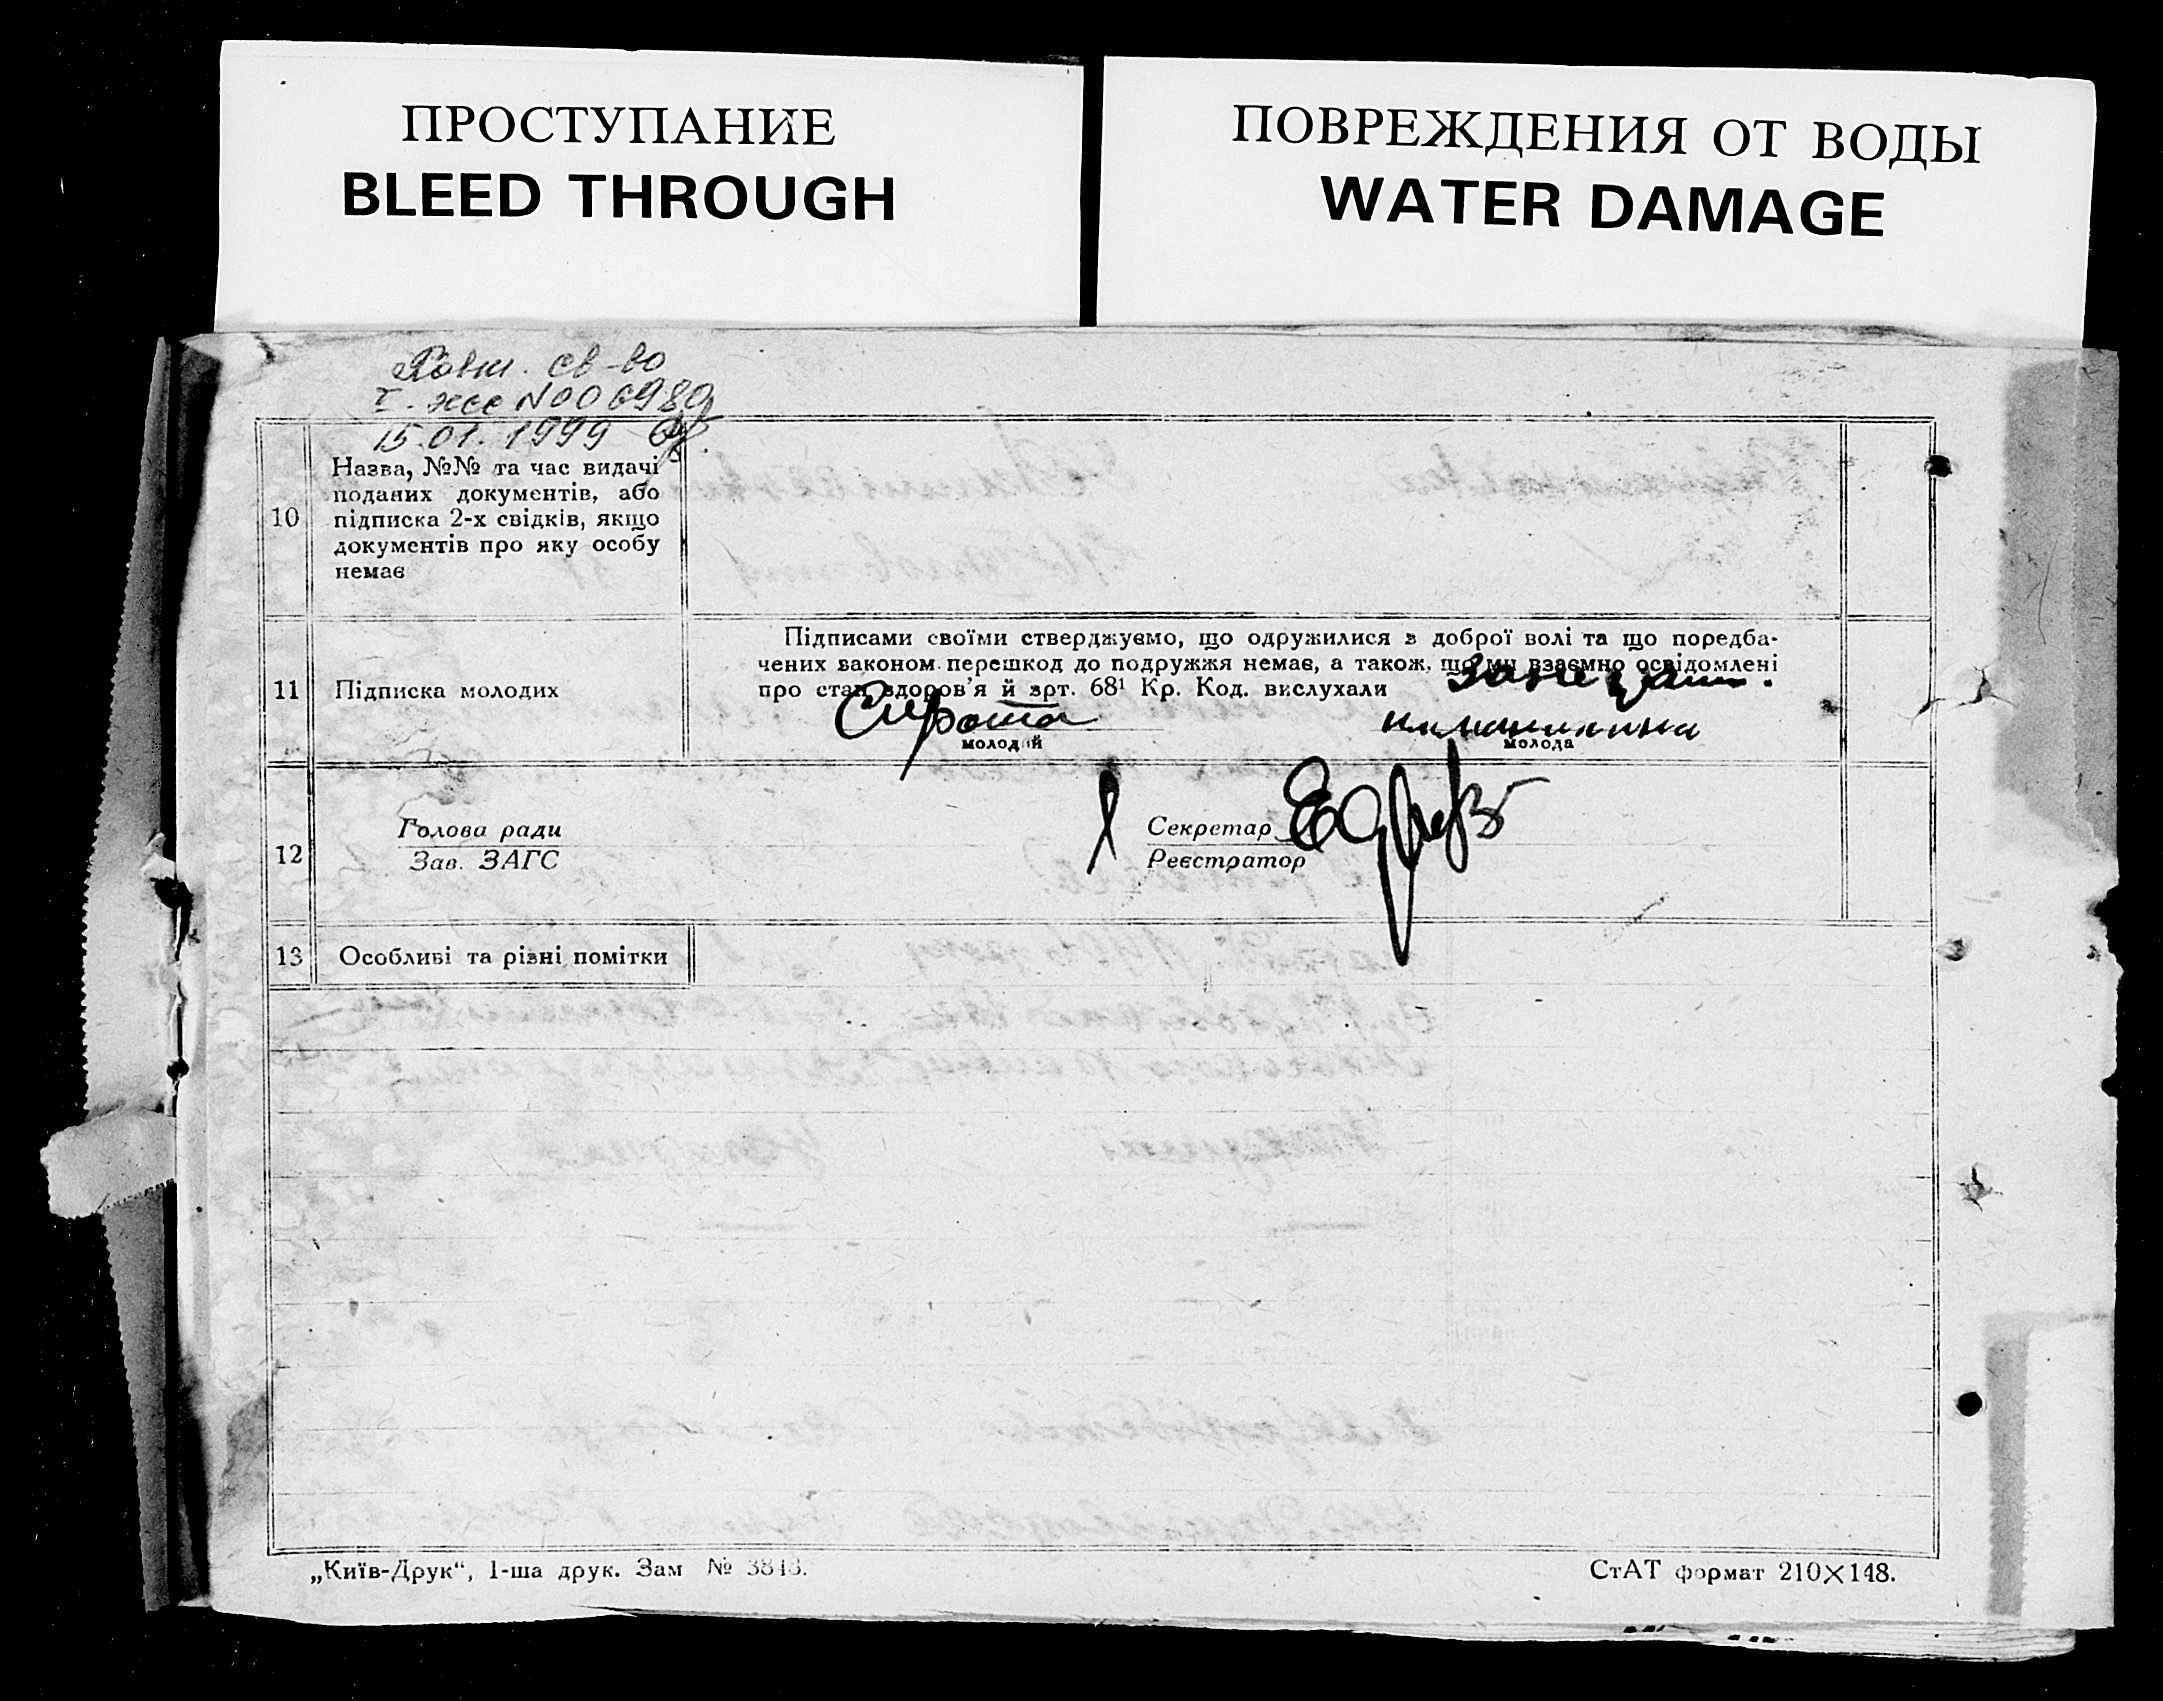 ПРОСТУПАНИЕ
BLEED THROUGH
ПОВРЕЖДЕНИЯ ОТ ВОДЫ
WATER DAMAGE
св-во
N006989
15.01.1999
10
Назва, №№ та час видачі
поданих документів, або
підписка 2-х свідків, якщо
документів про яку особу
немає
11
Підписка молодих
Підписами своїми стверджуємо, що одружилися з доброї волі та що поредба-
чених законом перешкод до подружжя немає, а також, що ми взаємно освідомлені
про стан здоров'я й арт. 68¹ Кр. Код. вислухали
Сирота
молодий
молода
12
Голова ради
Зав. ЗАГС
Секретар
Реєстратор
13
Особливі та різні помітки
„Київ-Друк“, 1-ша друк. Зам № 3843.
СтАТ формат 210×148.